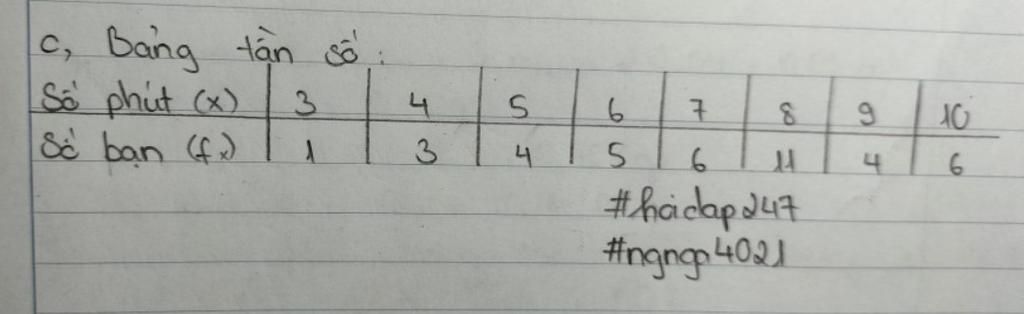 c, Bảng tần số:
Số phút (x) 3 4 5 6 7 8 9 10
Số bạn (fx) 1 3 4 5 6 11 4 6
#hoidap247
#ngnga4021